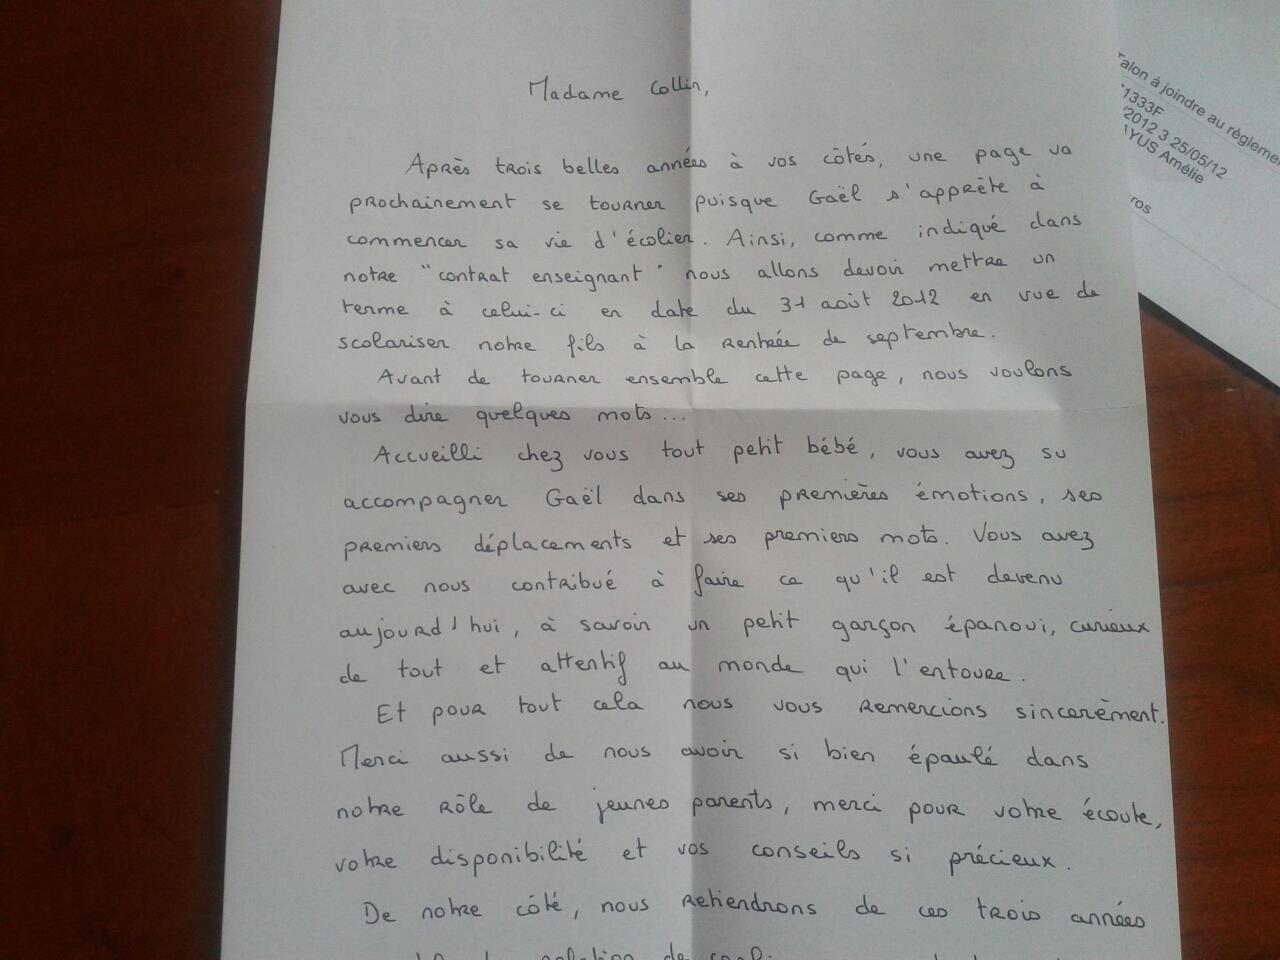 Madame Collin,
Après trois belles années à vos côtés, une page va
prochainement se tourner puisque Gaël s'apprête à
commencer sa vie d'écolier. Ainsi, comme indiqué dans
notre "contrat enseignant" nous allons devoir mettre un
terme à celui-ci en date du 31 août 2012 en vue de
scolariser notre fils à la rentrée de septembre.
Avant de tourner ensemble cette page, nous voulons
vous dire quelques mots...
Accueilli chez vous tout petit bébé, vous avez su
accompagner Gaël dans ses premières émotions, ses
premiers déplacements et ses premiers mots. Vous avez
avec nous contribué à faire ce qu'il est devenu
aujourd'hui, à savoir un petit garçon épanoui, curieux
de tout et attentif au monde qui l'entoure.
Et pour tout cela nous vous remercions sincerèment.
Merci aussi de nous avoir si bien épaulé dans
notre rôle de jeunes parents, merci pour votre écoute,
votre disponibilité et vos conseils si précieux.
De notre côté, nous retiendrons de ces trois années
relation de
Talon à joindre au règlement
1333F
/2012 3 25/05/12
YUS Amélie
ros